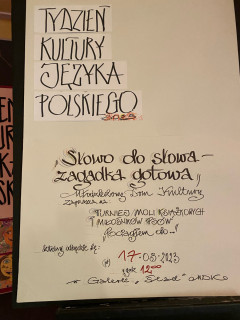 TYDZIEŃ
KULTURY
JĘZYKA
POLSKIEGO
2023
„Słowo do słowa –
zagadka gotowa"
Młodzieżowy Dom Kultury
zaprasza na
TURNIEJ MOLI KSIĄŻKOWYCH
I MIŁOŚNIKÓW PSÓW
który odbędzie się
17-05-2023
godz. 12⁰⁰
w Galerii